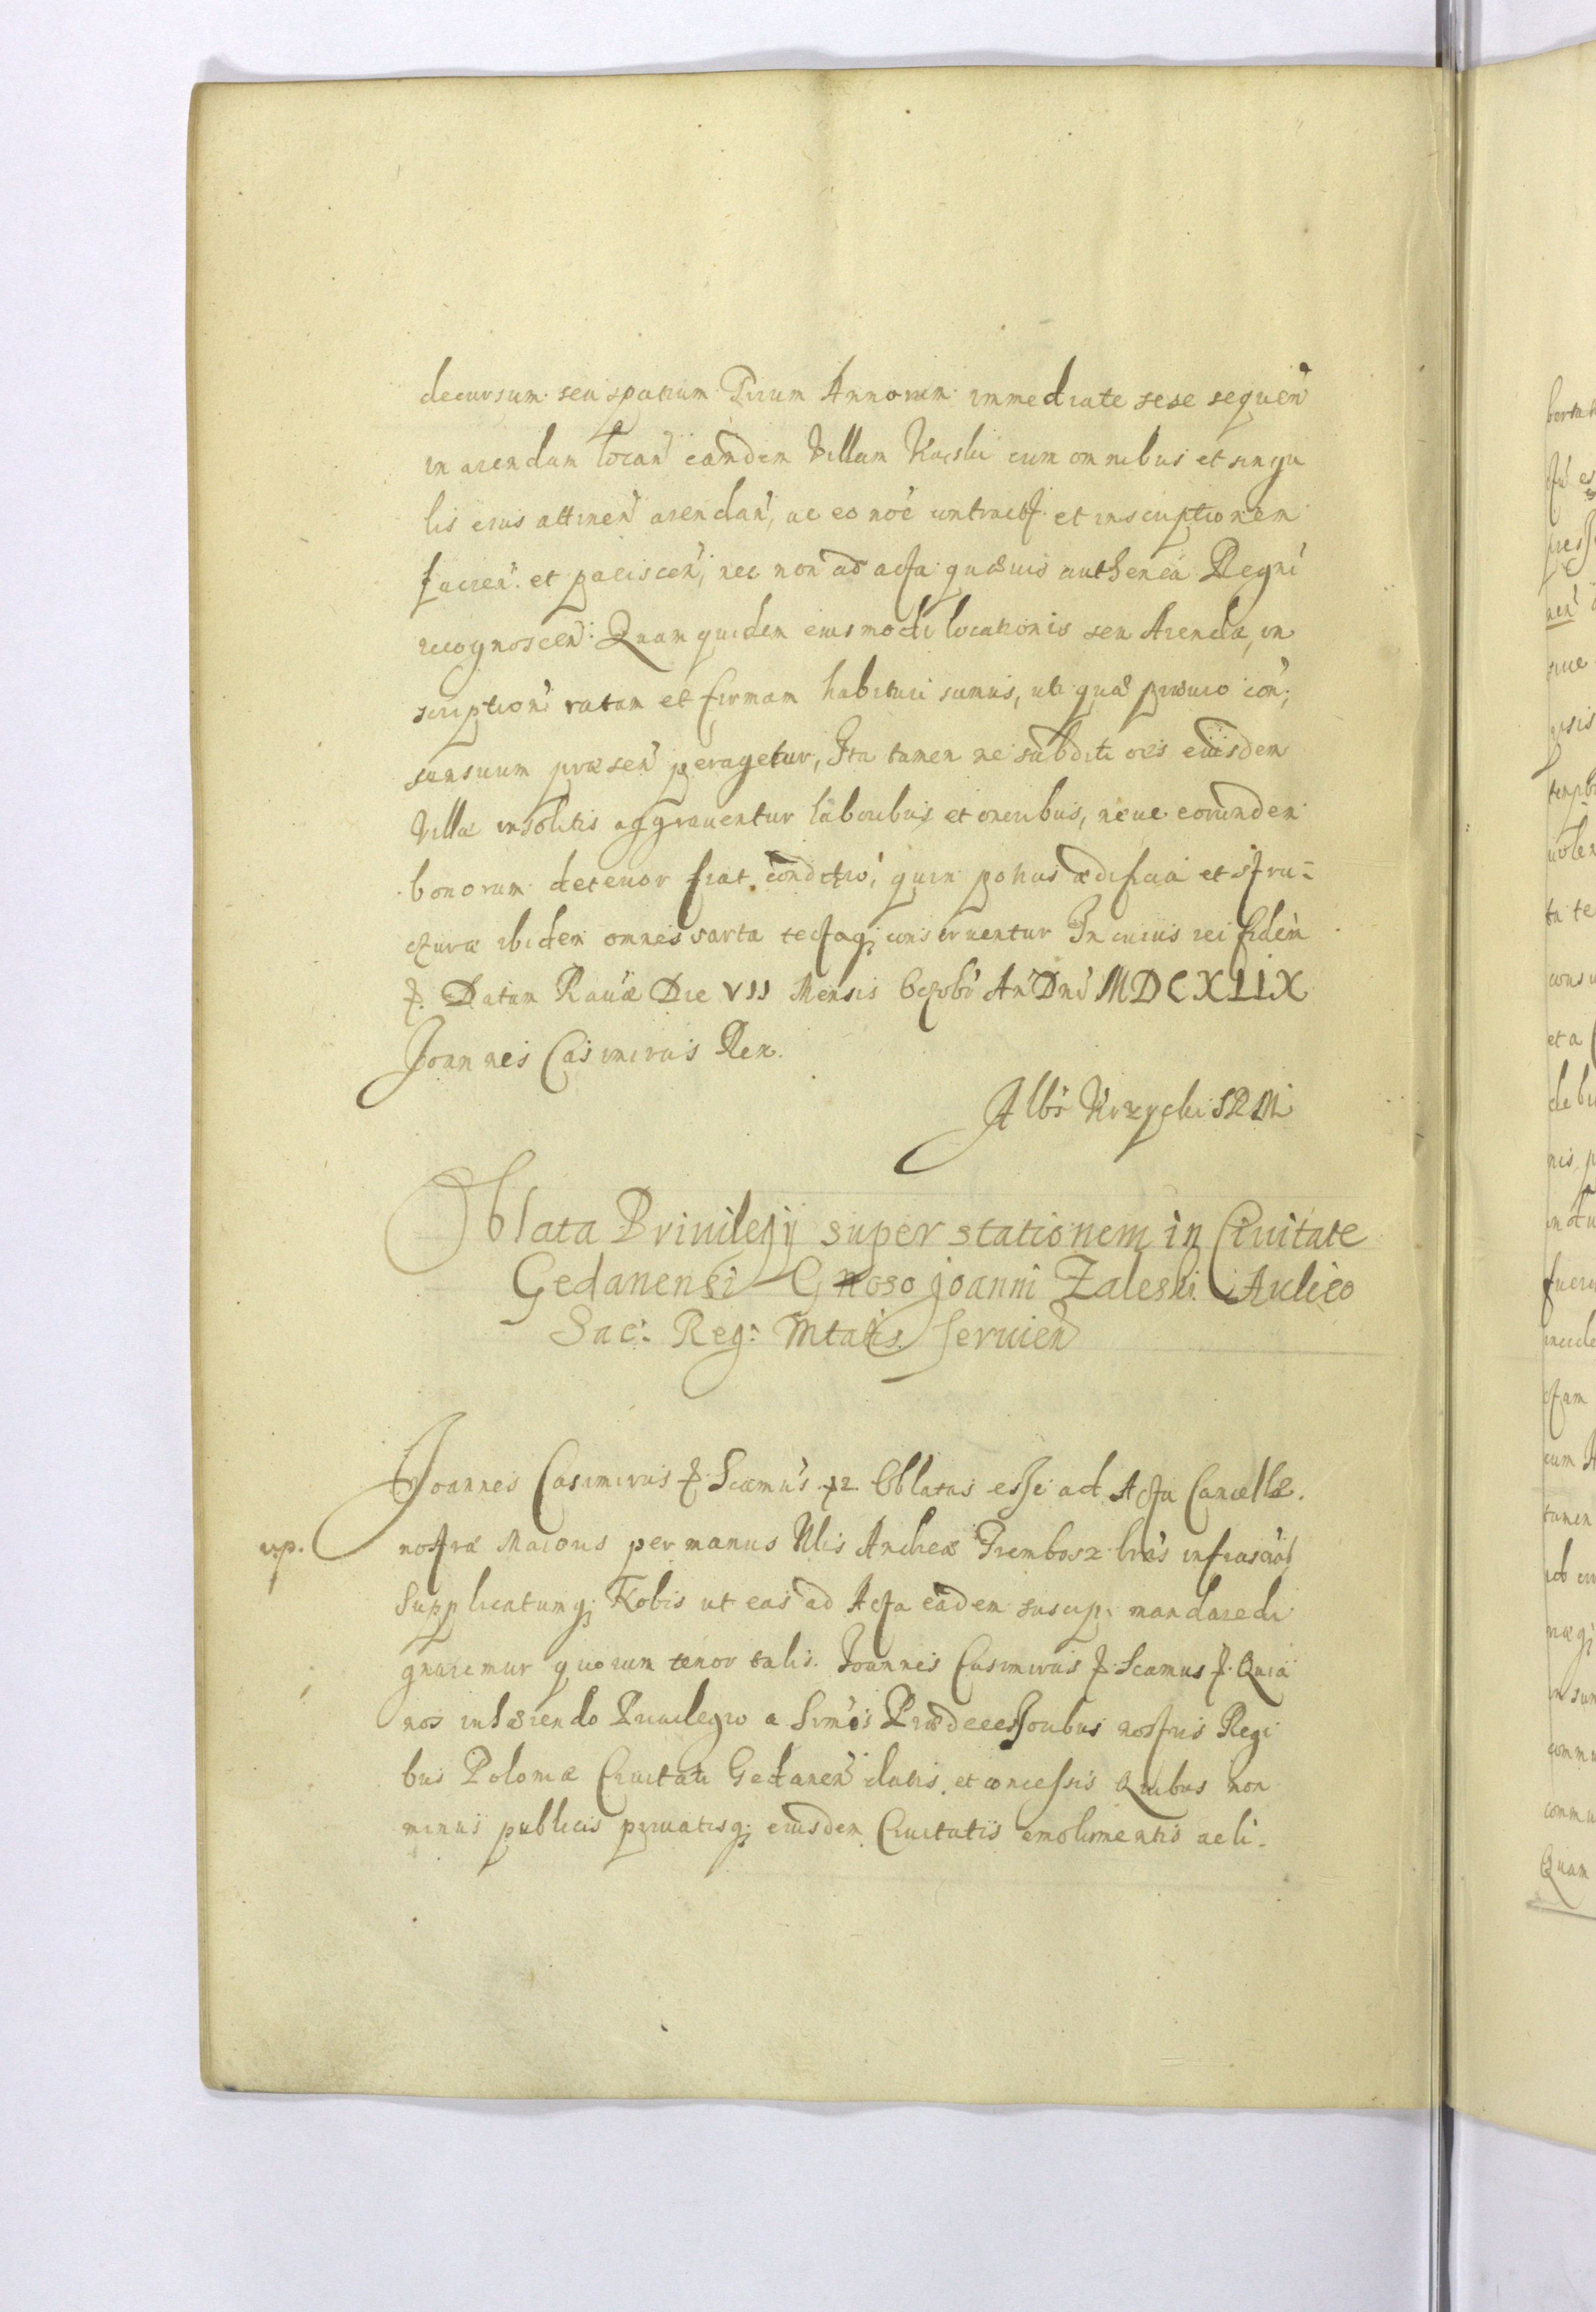 decursum seu spatium Trium Annorum immediate sese sequen̄
in arendam locan̄ eandem Villam Kucski cum omnibus et singu
lis eius attinen̄ arendan̄, ac eo noē contract. et inscriptionem
facien̄. et paciscen̄, nec non ad acta quævis authenca Regni
recognoscen̄: Quam quidem eiusmodi locationis seu Arendæ, in
scription̄ ratam et firmam habituri sumus, uti quæ prævio con;
sensuum præsen̄ peragetur, Ita tamen ne subditi oēs eiusdem
Villæ insolitis aggrauentur laboribus et oneribus, neue eorundem
bonorum deterior fiat conditio, quin potius ædificia et stru=
cturæ ibidem omnes sarta tectaq; conseruentur In cuius rei fidem
&. Datum Rauæ Die VII Mensis Octobr̄ An̄ Dni MDCXLIX
Joannes Casimirus Rex.
Albs Krzycki SRM
Oblata Priuilegij super stationem in Ciuitate
Gedanensi Gnoso Joanni Zaleski Aulico
Sac: Reg: Mtatis Seruien̄
Joannes Casimirus &. Scamus &. Oblatas esse ad Acta Cancellæ.
nostræ Maioris per manus Nlis Andreæ Trembosz lras infrascrā
Supplicatumq; Nobis ut eas ad Acta eadem suscip: mandare di
gnaremur quorum tenor talis. Joannes Casimirus &. Scamus &. Quia
nos inhærendo Priuilegio a Srmis Prædecessoribus nostris Regi
bus Poloniæ Ciuitati Gedanen̄ datis et concessis Quibus non
minus publicis priuatisq; eiusdem Ciuitatis emolimentis ac li-